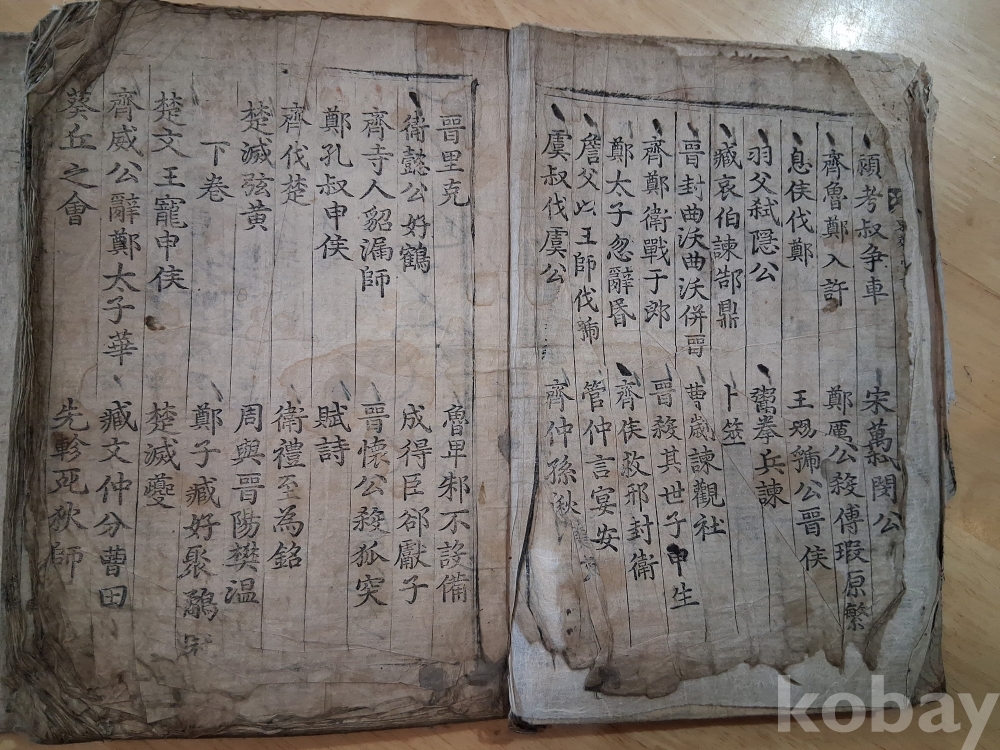 頴考叔争車
宋萬弑閔公
齊魯鄭入許
鄭厲公殺傅瑕原繁
息侯伐鄭
王賜虢公晉侯
羽父弑隱公
鬻拳兵諫
臧哀伯諫郜鼎
卜筮
晉封曲沃曲沃併晉
曹劌諫觀社
齊鄭衛戰于郎
晉殺其世子申生
鄭太子忽辭昏
齊侯救邢封衛
詹父以王師伐虢
管仲言宴安
虞叔伐虞公
齊仲孫湫
晉里克
魯卑邾不設備
衛懿公好鶴
成得臣郤獻子
齊寺人貂漏師
晉懷公殺狐突
鄭孔叔申侯
賦詩
齊伐楚
衛禮至為銘
楚滅弦黃
周與晉陽樊溫
下卷
鄭子臧好聚鷸冠
楚文王寵申侯
楚滅夔
齊威公辭鄭太子華
臧文仲分曹田
葵丘之會
先軫死狄師
kobay